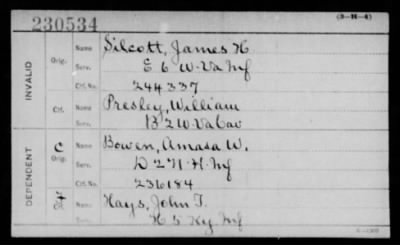 230534
(3-H-4)
INVALID
Orig. Name Silcott, James H.
Serv. E 6 W. Va Inf
Ctf. No. 244337
Ctf. Name Presley, William
Serv. B 2 W. Va Cav
DEPENDENT
C Orig. Name Bowen, Amasa W.
Serv. D 2 N. H. Inf
Ctf. No. 236184
Name Hays, John T.
Serv. H 5 Ky Inf